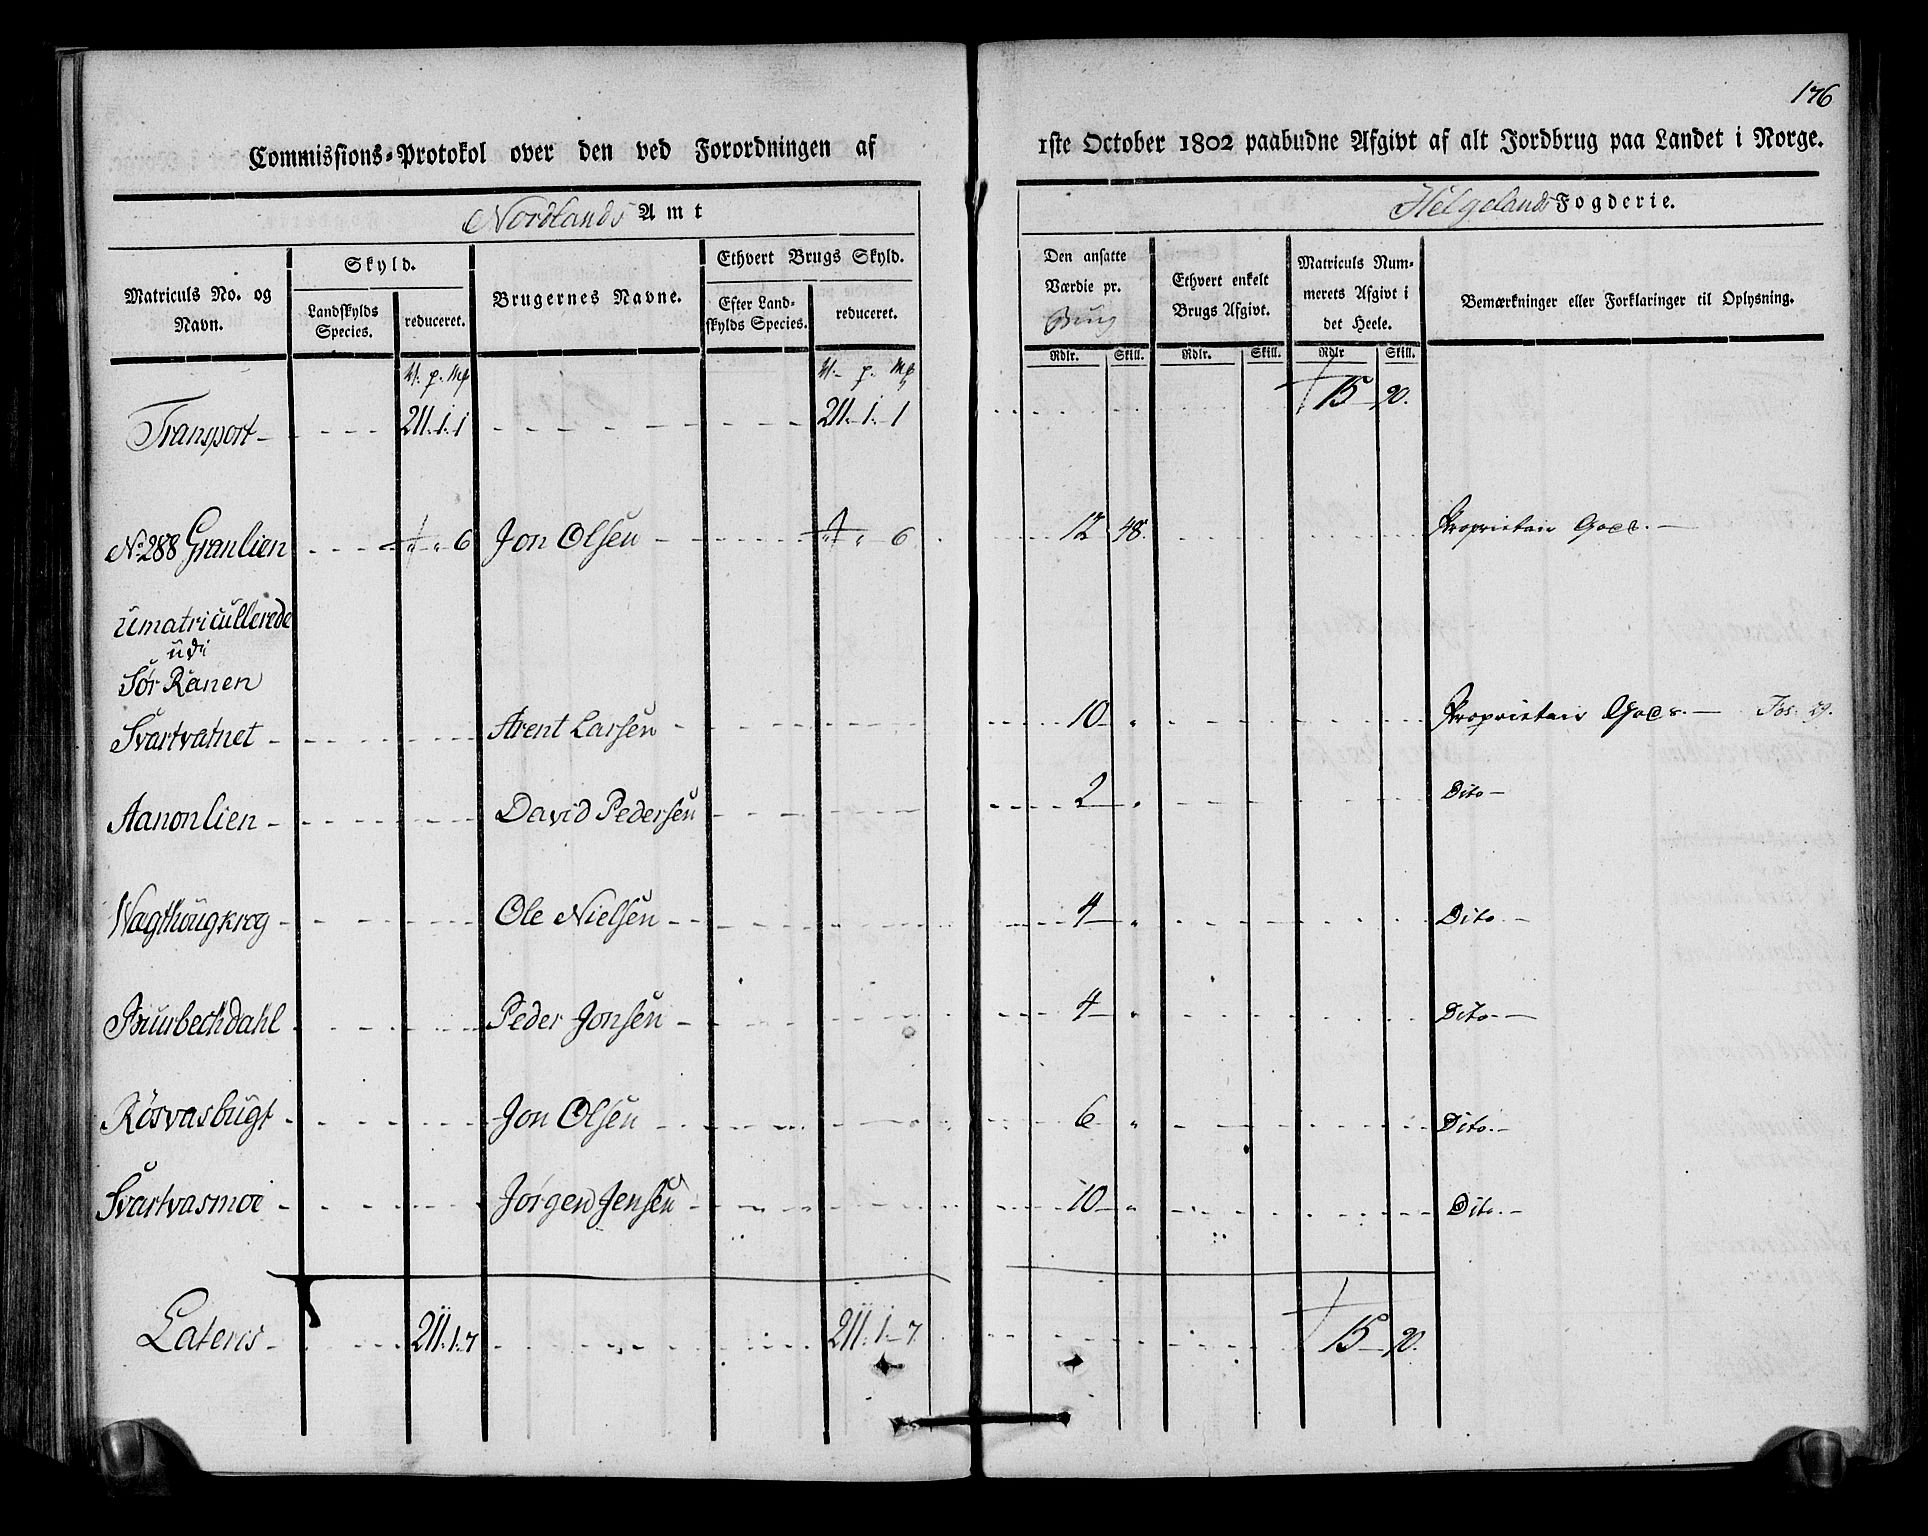 176
Commissions-Protokol over den ved Forordningen af 1ste October 1802 paabudne Afgivt af alt Jordbrug paa Landet i Norge.
Nordlands Amt
Helgelands Fogderie.
Matriculs No. og Navn.
Skyld.
Landskylds Species.
reduceret.
Brugernes Navne.
Ethvert Brugs Skyld.
Efter Landskylds Species.
reduceret.
Den ansatte Værdie pr. Brug
Rdlr. Skill.
Ethvert enkelt Brugs Afgivt.
Rdlr. Skill.
Matriculs Nummerets Afgivt i det Heele.
Rdlr Skill.
Bemærkninger eller Forklaringer til Oplysning.
Transport 211. 1. 1 211. 1. 1 15 90.
No 288 Granlien 6 Jon Olsen 6 12 48. Proprietair Goes.
Umatricullerede
udi
Sør Ranen
Svartvatnet Arent Larsen 10 Proprietair Goes. Fos: 29.
Aanonlien David Pedersen 2 Dito
Wægthougkrog Ole Nielsen 4 Dito
Buurbechdahl Peder Jonsen 4 Dito
Røsvasbugt Jon Olsen 6 Dito
Svartvasmoe Jørgen Jensen 10 Dito
Lateris 211. 1. 7 211. 1. 7 15 90.